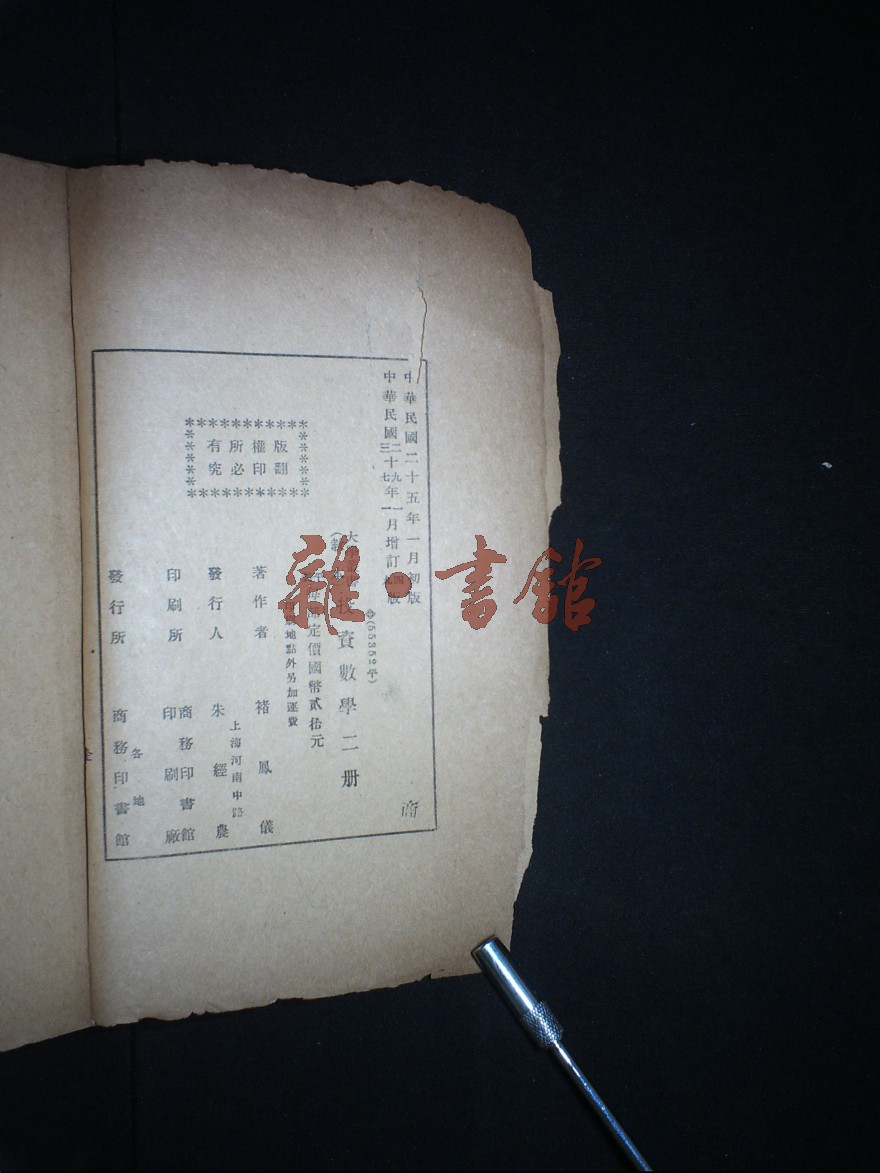 中華民國二十五年一月初版
中華民國二十九年一月增訂
三十七年一月四版
(55352平)
投資數學二册
定價國幣貳拾元
地點外另加運費
版權所有
翻印必究
著作者 褚鳳儀
發行人 朱經農
上海河南中路
印刷所 商務印書館
印刷廠
發行所 商務印書館
各地
商
雜·書館